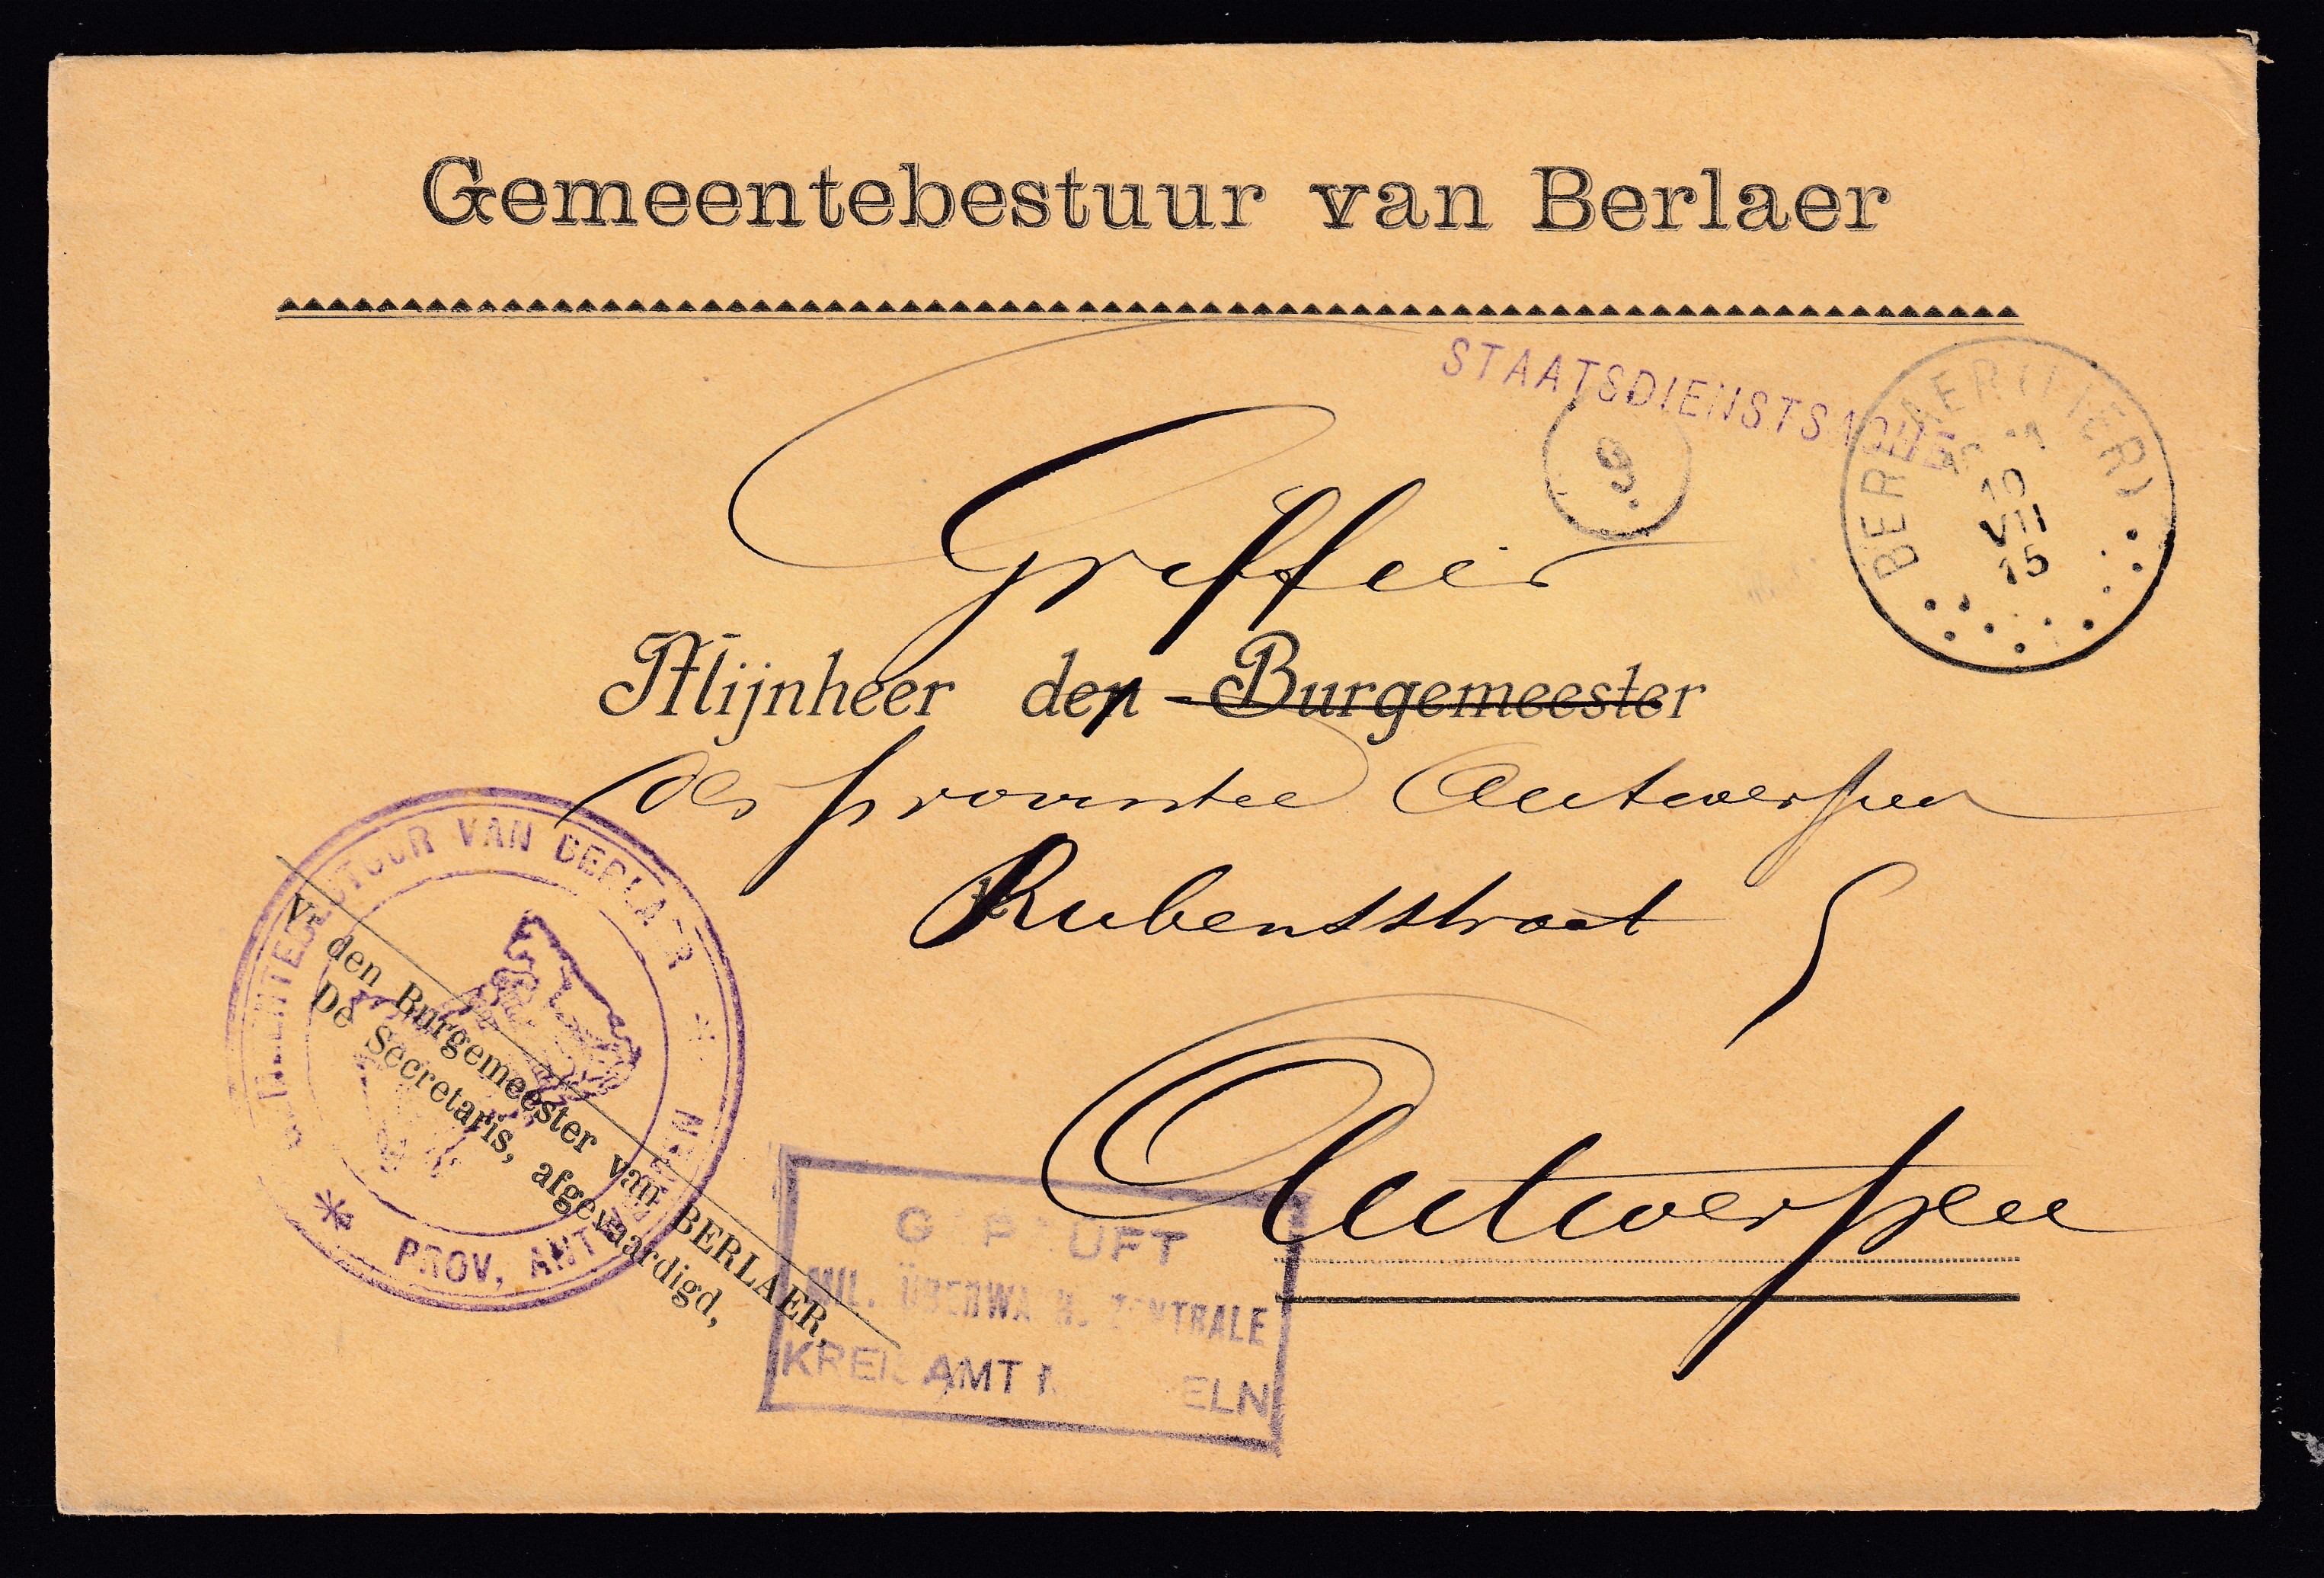 Gemeentebestuur van Berlaer
STAATSDIENSTSACHE
9
BERLAER (LIER)
10
VII
15
Griffier
Mijnheer den Burgemeester
der provintie Antwerpen
Rubensstraat 5
Antwerpen
GEMEENTEBESTUUR VAN BERLAER * PROV. ANTWERPEN *
Vr den Burgemeester van BERLAER,
De Secretaris, afgevaardigd,
GEPRÜFT
MIL. ÜBERWACH. ZENTRALE
KREISAMT MECHELN